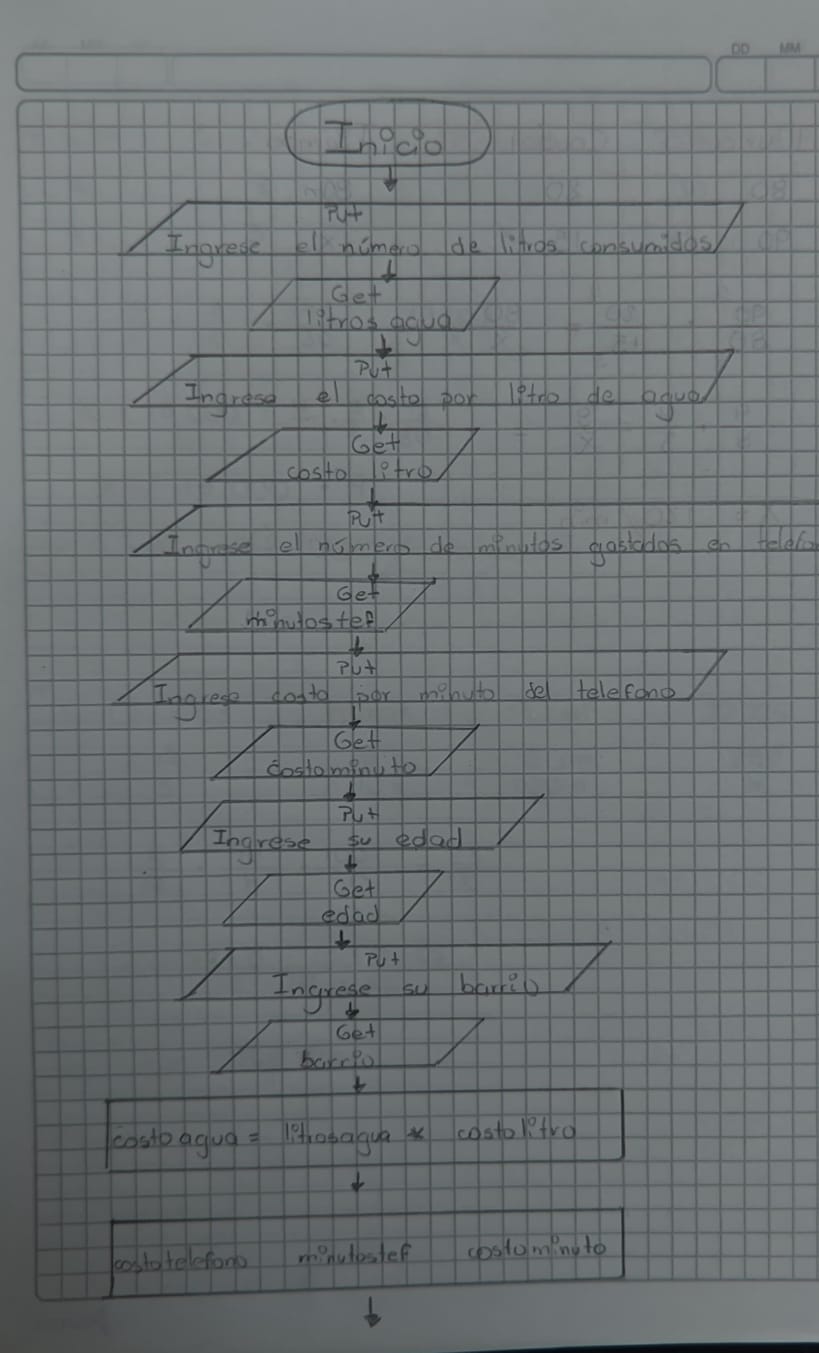 DD MM
Inicio
Put
Ingrese el número de litros consumidos
Get
litros agua
Put
Ingrese el costo por litro de agua
Get
costo litro
Put
Ingrese el número de minutos gastados en telefo
Get
minutostef
Put
Ingrese costo por minuto del telefono
Get
costominuto
Put
Ingrese su edad
Get
edad
Put
Ingrese su barrio
Get
barrio
costoagua = litrosagua * costolitro
costotelefono minutostef costominuto